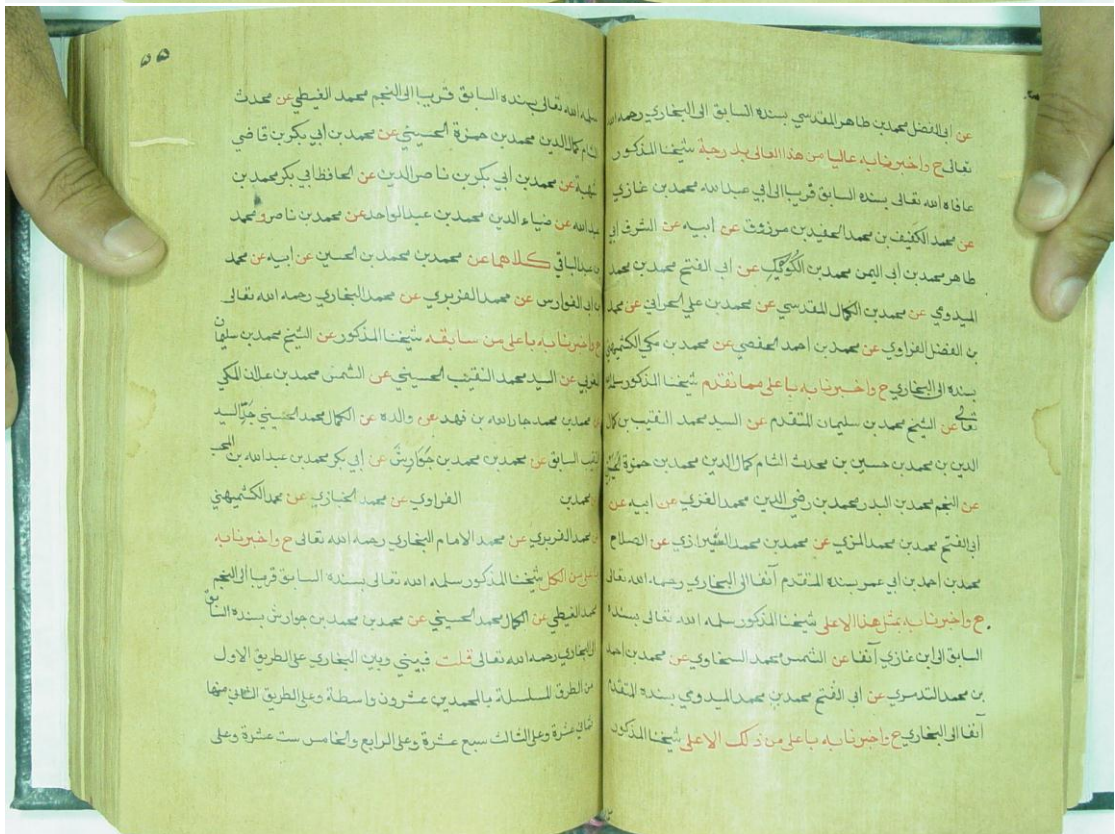 عن أبي الفضل محمد بن طاهر المقدسي بسنده السابق الى البخاري رحمه الله
تعالى ح واخبرنا به عاليا من هذا العالى بدرجة شيخنا المذكور
عافاه الله تعالى بسنده السابق قريبا الى ابي عبد الله محمد بن غازي
عن محمد الكفيف بن محمد الحفيد بن مرزوق عن أبيه عن الشرف ابي
طاهر محمد بن أبي اليمن محمد بن الكُوَيْك عن أبي الفتح محمد بن محمد
الميدوي عن محمد بن الكمال المقدسي عن محمد بن علي الحراني عن محمد
بن الفضل الفراوي عن محمد بن احمد الحفصي عن محمد بن مكي الكشميهني
بسنده الى البخاري ح واخبرنا به باعلى مما تقدم شيخنا المذكور سلمه
تعالى عن الشيخ محمد بن سليمان المتقدم عن السيد محمد النقيب بن كمال
الدين بن محمد بن حسين بن محدث الشام كمال الدين محمد بن حمزة
عن النجم محمد بن البدر محمد بن رضي الدين محمد الغزي عن ابيه عن
أبي الفتح محمد بن محمد المزي عن محمد بن محمد الشيرازي عن الصلاح
محمد بن احمد بن ابي عمر بسنده المتقدم آنفا الى البخاري رحمه الله تعالى
ح واخبرنا به بمثل هذا الاعلى شيخنا المذكور سلمه الله تعالى بسنده
السابق الى ابن غازي آنفا عن الشمس محمد السخاوي عن محمد بن احمد
بن محمد التدمري عن أبي الفتح محمد بن محمد الميدوي بسنده المتقدم
آنفا الى البخاري ح واخبرنا به باعلى من ذلك الاعلى شيخنا المذكور
٥٥
سلمه الله تعالى بسنده السابق قريبا الى النجم محمد الغيطي عن محدث
الشام كمال الدين محمد بن حمزة الحسيني عن محمد بن أبي بكر بن قاضي
شهبة عن محمد بن أبي بكر بن ناصر الدين عن الحافظ ابي بكر محمد بن
عبد الله عن ضياء الدين محمد بن عبد الواحد عن محمد بن ناصر ومحمد
بن عبد الباقي كلاهما عن محمد بن محمد بن الحسين عن أبيه عن محمد
بن ابي الفوارس عن محمد الفربري عن محمد البخاري رحمه الله تعالى
ح واخبرنا به باعلى من سابقه شيخنا المذكور عن الشيخ محمد بن سليمان
المغربي عن السيد محمد النقيب الحسيني عن الشمس محمد بن علان المكي
عن محمد بن محمد جار الله بن فهد عن والده عن الكمال محمد الحسيني جد السيد
النقيب السابق عن محمد بن محمد بن جوارش عن أبي بكر محمد بن عبد الله بن المحب
عن محمد بن الفراوي عن محمد الخبازي عن محمد الكشميهني
عن محمد الفربري عن محمد الامام البخاري رحمه الله تعالى ح واخبرنا به
من الكل شيخنا المذكور سلمه الله تعالى بسنده السابق قريبا الى النجم
محمد الغيطي عن الكمال محمد الحسيني عن محمد بن محمد بن جوارش بسنده السابق
الى البخاري رحمه الله تعالى قلت فبيني وبين البخاري على الطريق الاول
من الطرق المسلسلة بالمحمدين عشرون واسطة وعلى الطريق الثاني منها
ثمانية عشرة وعلى الثالث سبع عشرة وعلى الرابع والخامس ست عشرة وعلى